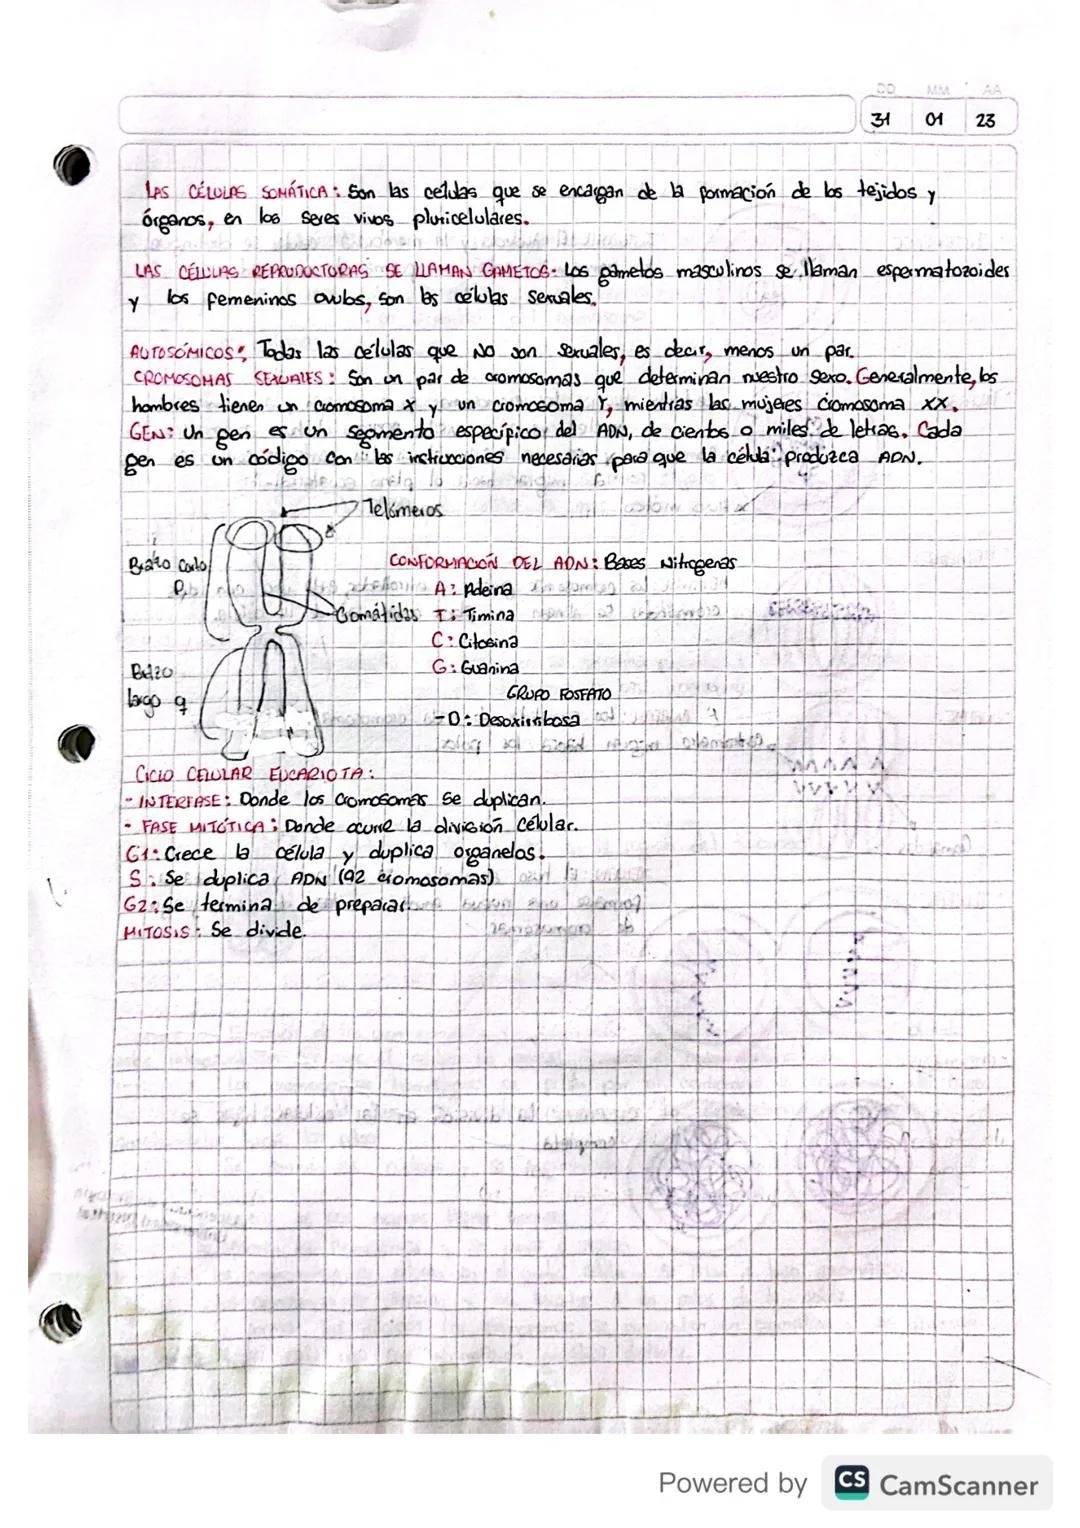 DD MM AA
31 01 23
LAS CÉLULAS SOMÁTICA: Son las células que se encargan de la formación de los tejidos y
órganos, en los seres vivos pluricelulares.
LAS CÉLULAS REPRODUCTORAS SE LLAMAN GAMETOS. Los gametos masculinos se llaman espermatozoides
y los femeninos ovulos, son las células sexuales.
AUTOSÓMICOS: Todas las células que NO son sexuales, es decir, menos un par.
CROMOSOMAS SEXUALES: Son un par de cromosomas que determinan nuestro sexo. Generalmente, los
hombres tienen un cromosoma X y un cromosoma Y, mientras las mujeres cromosoma XX.
GEN: Un gen es un segmento específico del ADN, de cientos o miles de letras. Cada
gen es un código con las instrucciones necesarias para que la célula produzca ADN.
Telómeros
Brazo Corto
P
Cromátidas
Brazo
largo q
CONFORMACIÓN DEL ADN: Bases Nitrogenas
A: Adeina
T: Timina
C: Citosina
G: Guanina
GRUPO FOSFATO
-D: Desoxirribosa
CICLO CELULAR EUCARIOTA:
- INTERFASE: Donde los cromosomas se duplican.
- FASE MITÓTICA: Donde ocurre la división celular.
G1: Crece la célula y duplica organelos.
S: Se duplica ADN (92 cromosomas)
G2: Se termina de preparar.
MITOSIS: Se divide.
Powered by CS CamScanner